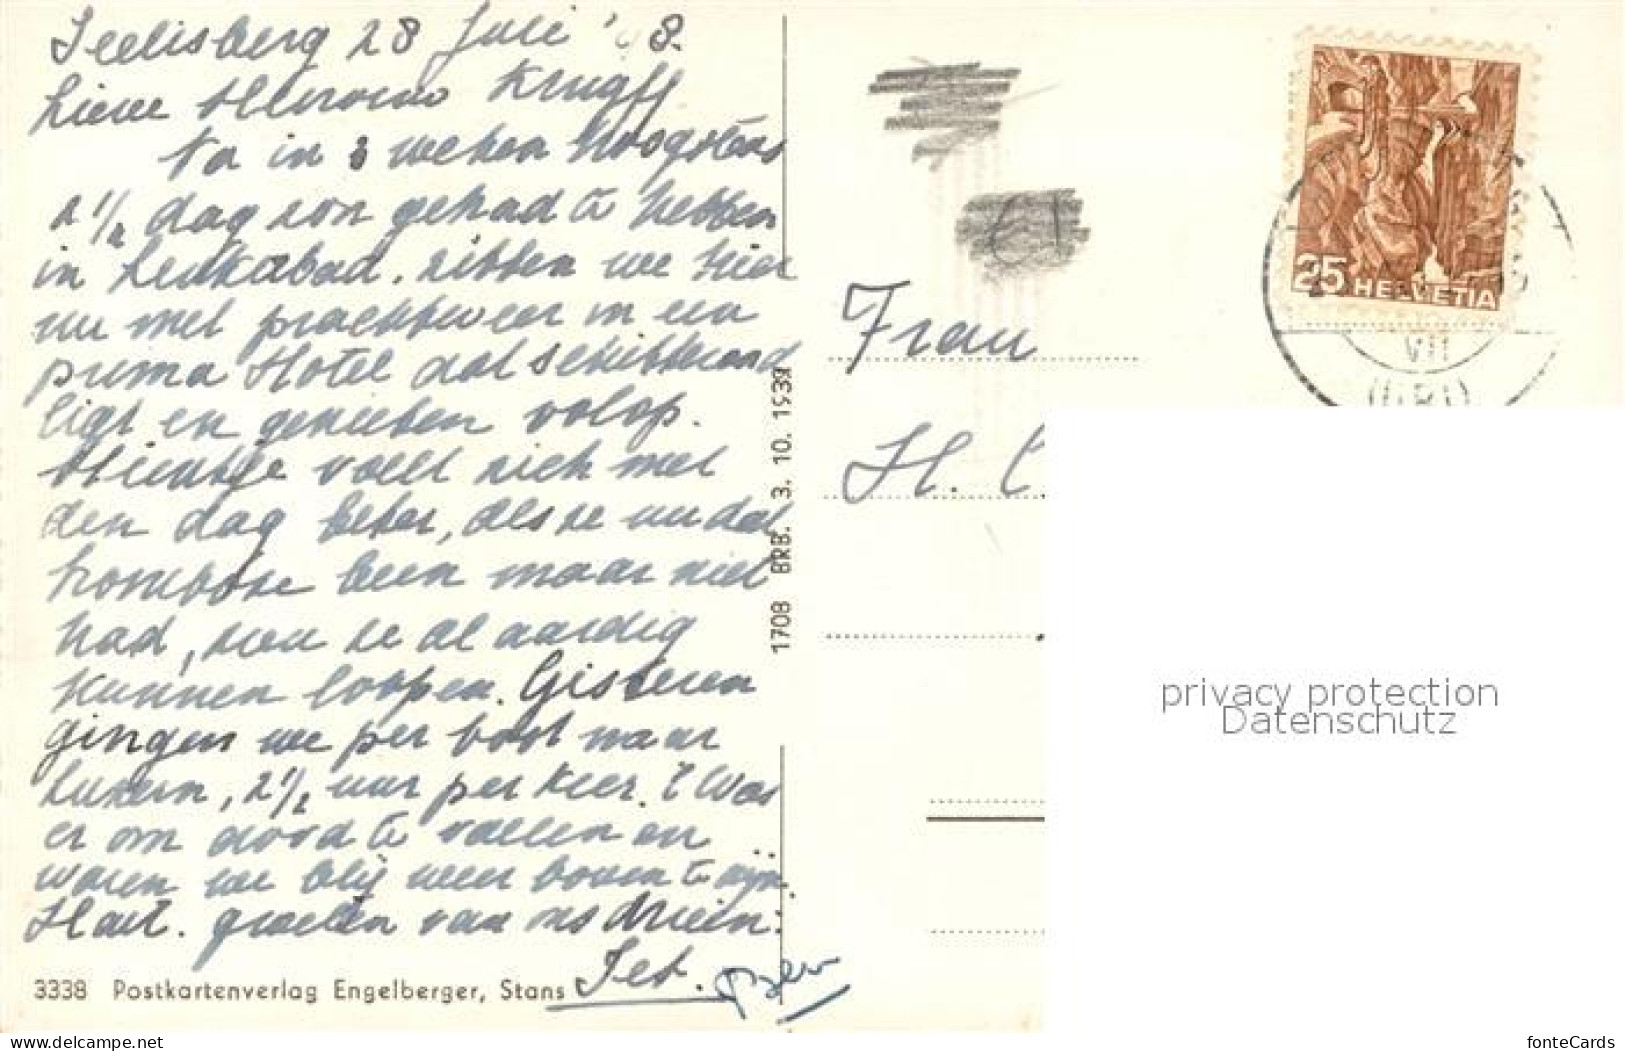 Seelisberg 28 Juli '48.
Lieve Mevrouw Kruyff
Na in 3 weken hoogstens
2 1/2 dag zon gehad te hebben
in Lenkabad. zitten we hier
nu met prachtweer in een
prima Hotel dat schitterend
ligt en genieten volop.
Mientje voelt zich met
den dag beter, als ze nu dat
trombose been maar niet
had, zou ze al aardig
kunnen loopen. Gisteren
gingen we per boot naar
Luzern, 2 1/2 uur per keer. 't Was
er om dood te vallen en
waren we blij weer boven te zijn.
Hart. groeten van ons drieën:
Jet.
3338 Postkartenverlag Engelberger, Stans
1708 BRB. 3. 10. 1939
25 HELVETIA
VII
(URI)
Frau
H. C.
privacy protection
Datenschutz
www.delcampe.net
fonteCards